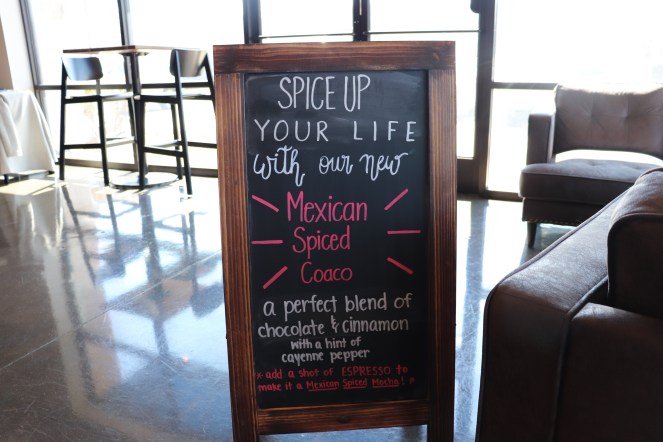 SPICE UP
YOUR LIFE
with our new
Mexican
Spiced
Coaco
a perfect blend of
chocolate & cinnamon
with a hint of
cayenne pepper
* add a shot of ESPRESSO to
make it a Mexican Spiced Mocha! *